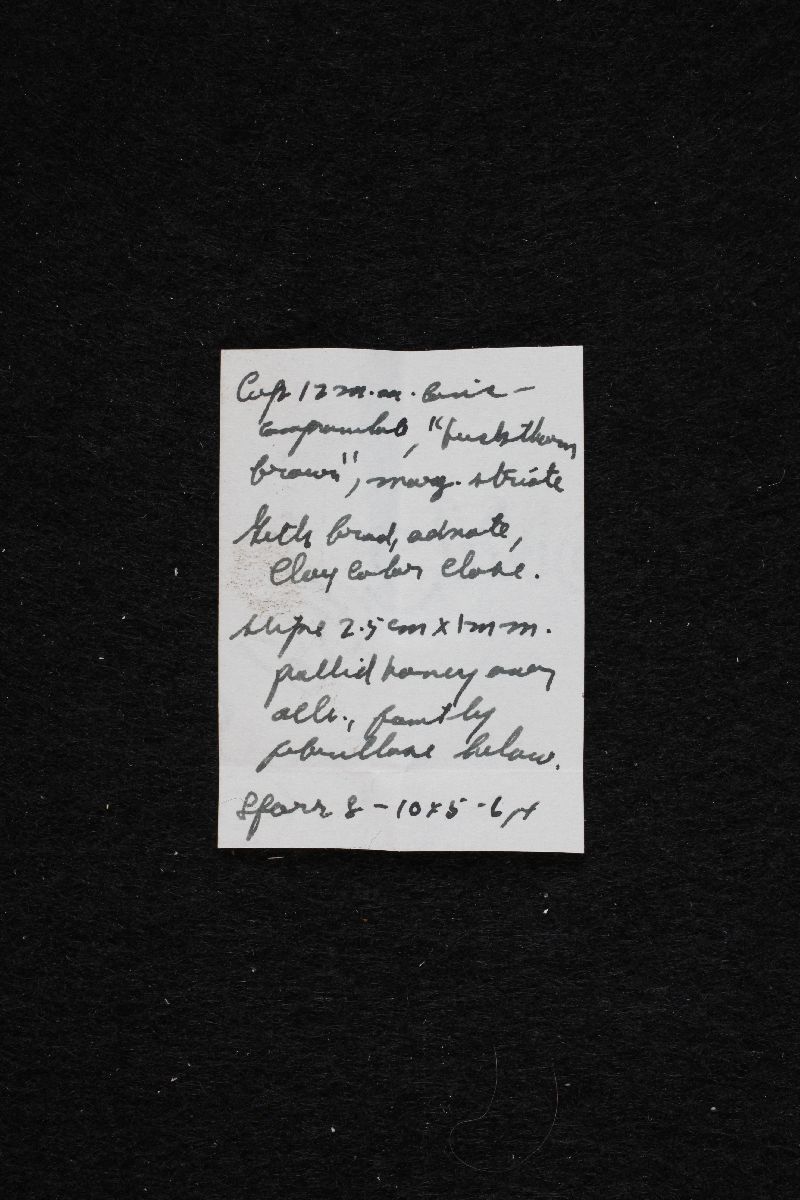 Cap 12 m.m. conic-
campanulate, "buckthorn
brown", marg. striate
Gills broad, adnate,
Clay Color close.
stipe 2.5 cm x 1 m m.
pallid honey
faintly
fibrillose below.
Spores 8-10 x 5-6 µ